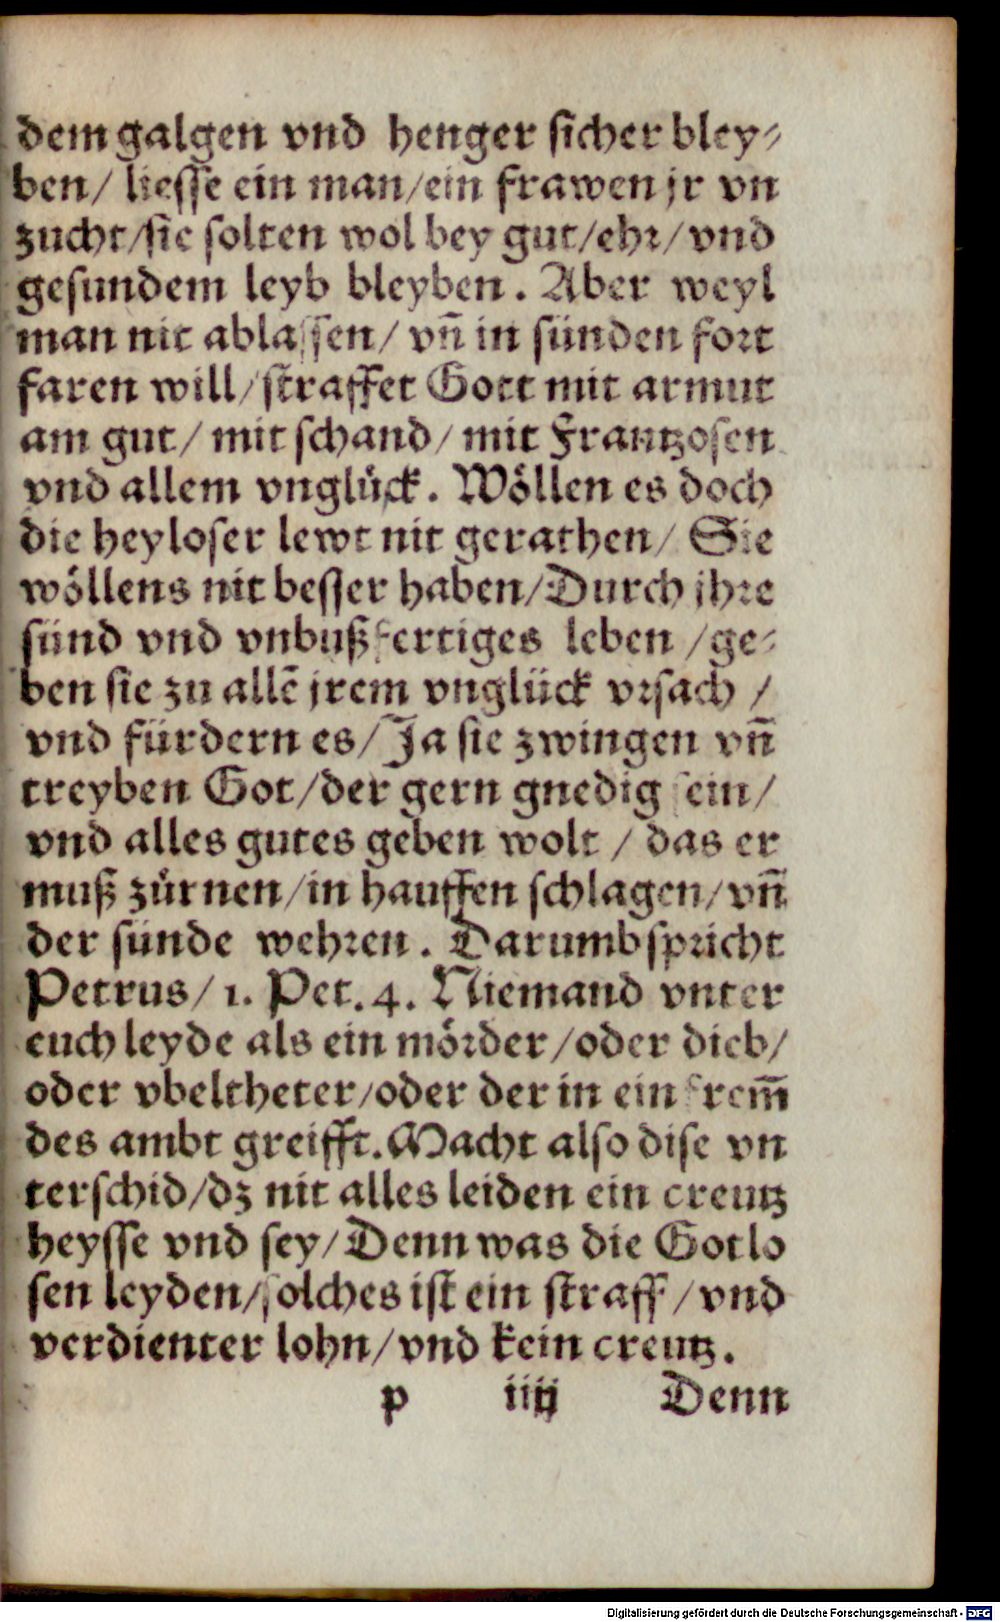 dem galgen vnd henger sicher bley⸗
ben/ liesse ein man/ein frawen jr vn
zucht/sie solten wol bey gut/ehr/vnd
gesundem leyb bleyben. Aber weyl
man nit ablassen/ vñ in sünden fort
faren will/straffet Gott mit armut
am gut/ mit schand/ mit Frantzosen
vnd allem vnglück. Wöllen es doch
die heyloser lewt nit gerathen/ Sie
wöllens nit besser haben/Durch jhre
sünd vnd vnbußfertiges leben /ge⸗
ben sie zu allẽ jrem vnglück vrsach /
vnd fürdern es/Ja sie zwingen vñ
treyben Got/der gern gnedig sein/
vnd alles gutes geben wolt / das er
muß zürnen/in hauffen schlagen/vñ
der sünde wehren. Darumb spricht
Petrus/ 1. Pet. 4. Niemand vnter
euch leyde als ein mörder/oder dieb/
oder vbeltheter/oder der in ein frem̃
des ambt greifft. Macht also dise vn
terschid/dz nit alles leiden ein creutz
heysse vnd sey/Denn was die Gotlo
sen leyden/solches ist ein straff/vnd
verdienter lohn/vnd kein creutz.
p iiij Denn
Digitalisierung gefördert durch die Deutsche Forschungsgemeinschaft - DFG